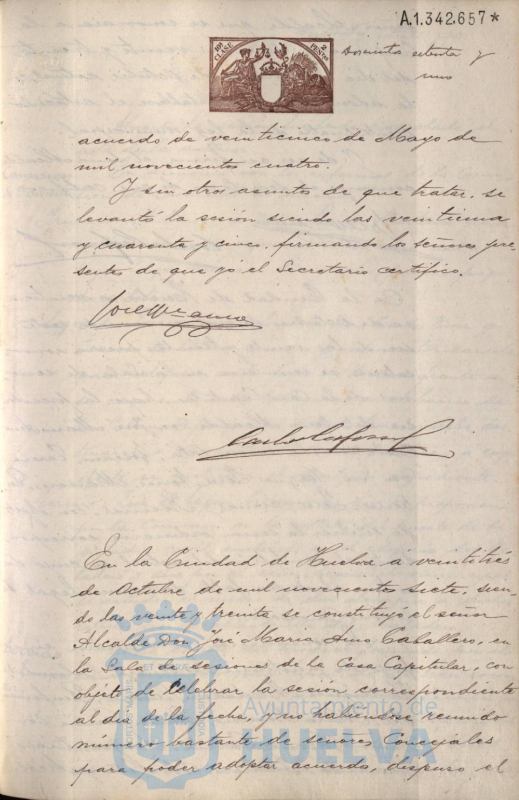 A.1.342.657*
10ª CLASE 2 PESETAS
Doscientos setenta y
uno
acuerdo de veinticinco de Mayo de
mil novecientos cuatro.
Y sin otros asuntos de que tratar, se
levantó la sesión siendo las veintiuna
y cuarenta y cinco, firmando los señores pre-
sentes de que yó el Secretario certifico.
En la Ciudad de Huelva á veintitrés
de Octubre de mil novecientos siete, sien-
do las veinte y treinta se constituyó el señor
Alcalde Don José Maria Amo Caballero, en
la Sala de sesiones de la Casa Capitular, con
objeto de celebrar la sesión correspondiente
al dia de la fecha, y no habiendose reunido
número bastante de señores Concejales
para poder adoptar acuerdo, dispuso el
Ayuntamiento de
HUELVA